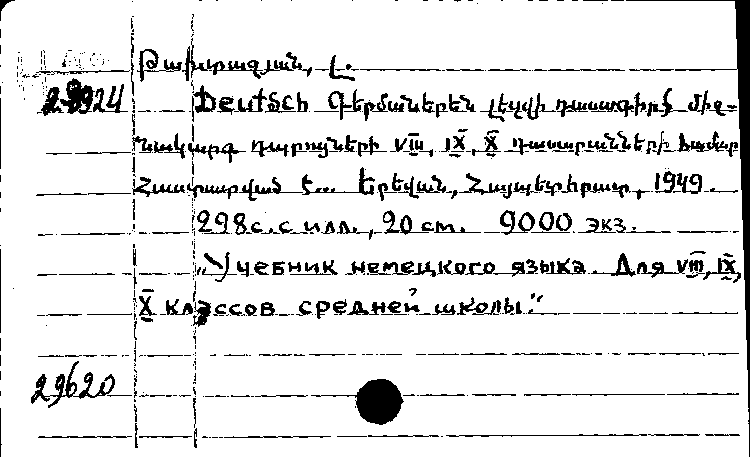 Թահարազյան, Լ.
2-8924 Deutsch Գերմաներեն լեզվի դասագիրք միջ-
նակարգ դպրոցների VIII, IX, X դասարանների համար
Հաստատված է... Երեվան, Հայպետհրատ, 1949.
298 с. с илл., 20 см. 9000 экз.
„Учебник немецкого языка. Для VIII, IX,
X классов средней школы."
29620